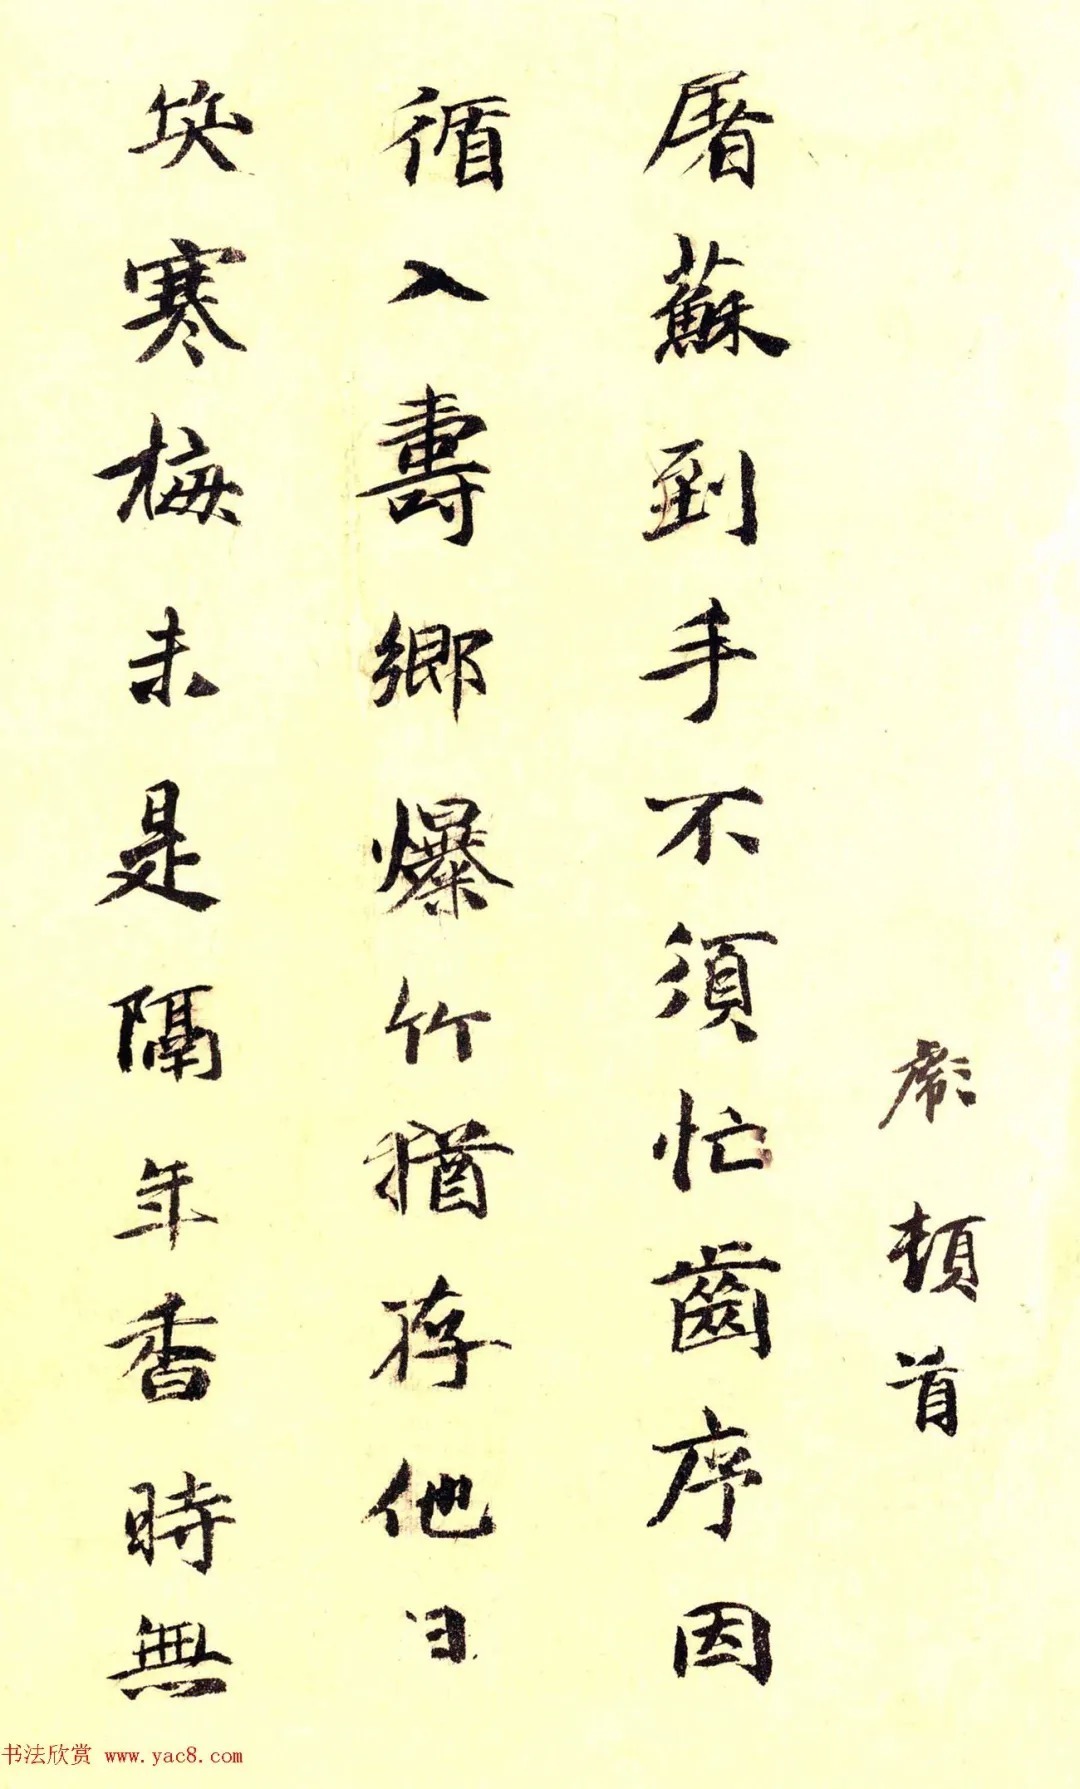 彪頓首
屠蘇到手不須忙齒序因
循入壽鄉爆竹猶存他日
笑寒梅未是隔年香時無
书法欣赏 www.yac8.com